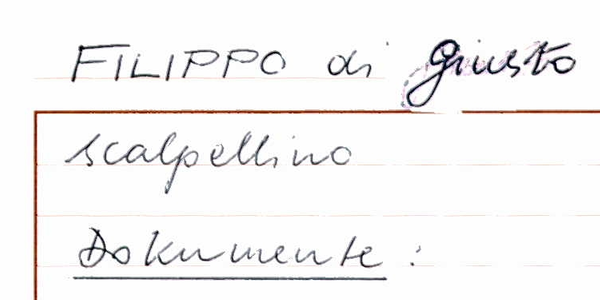 FILIPPO di Giusto
scalpellino
Dokumente: